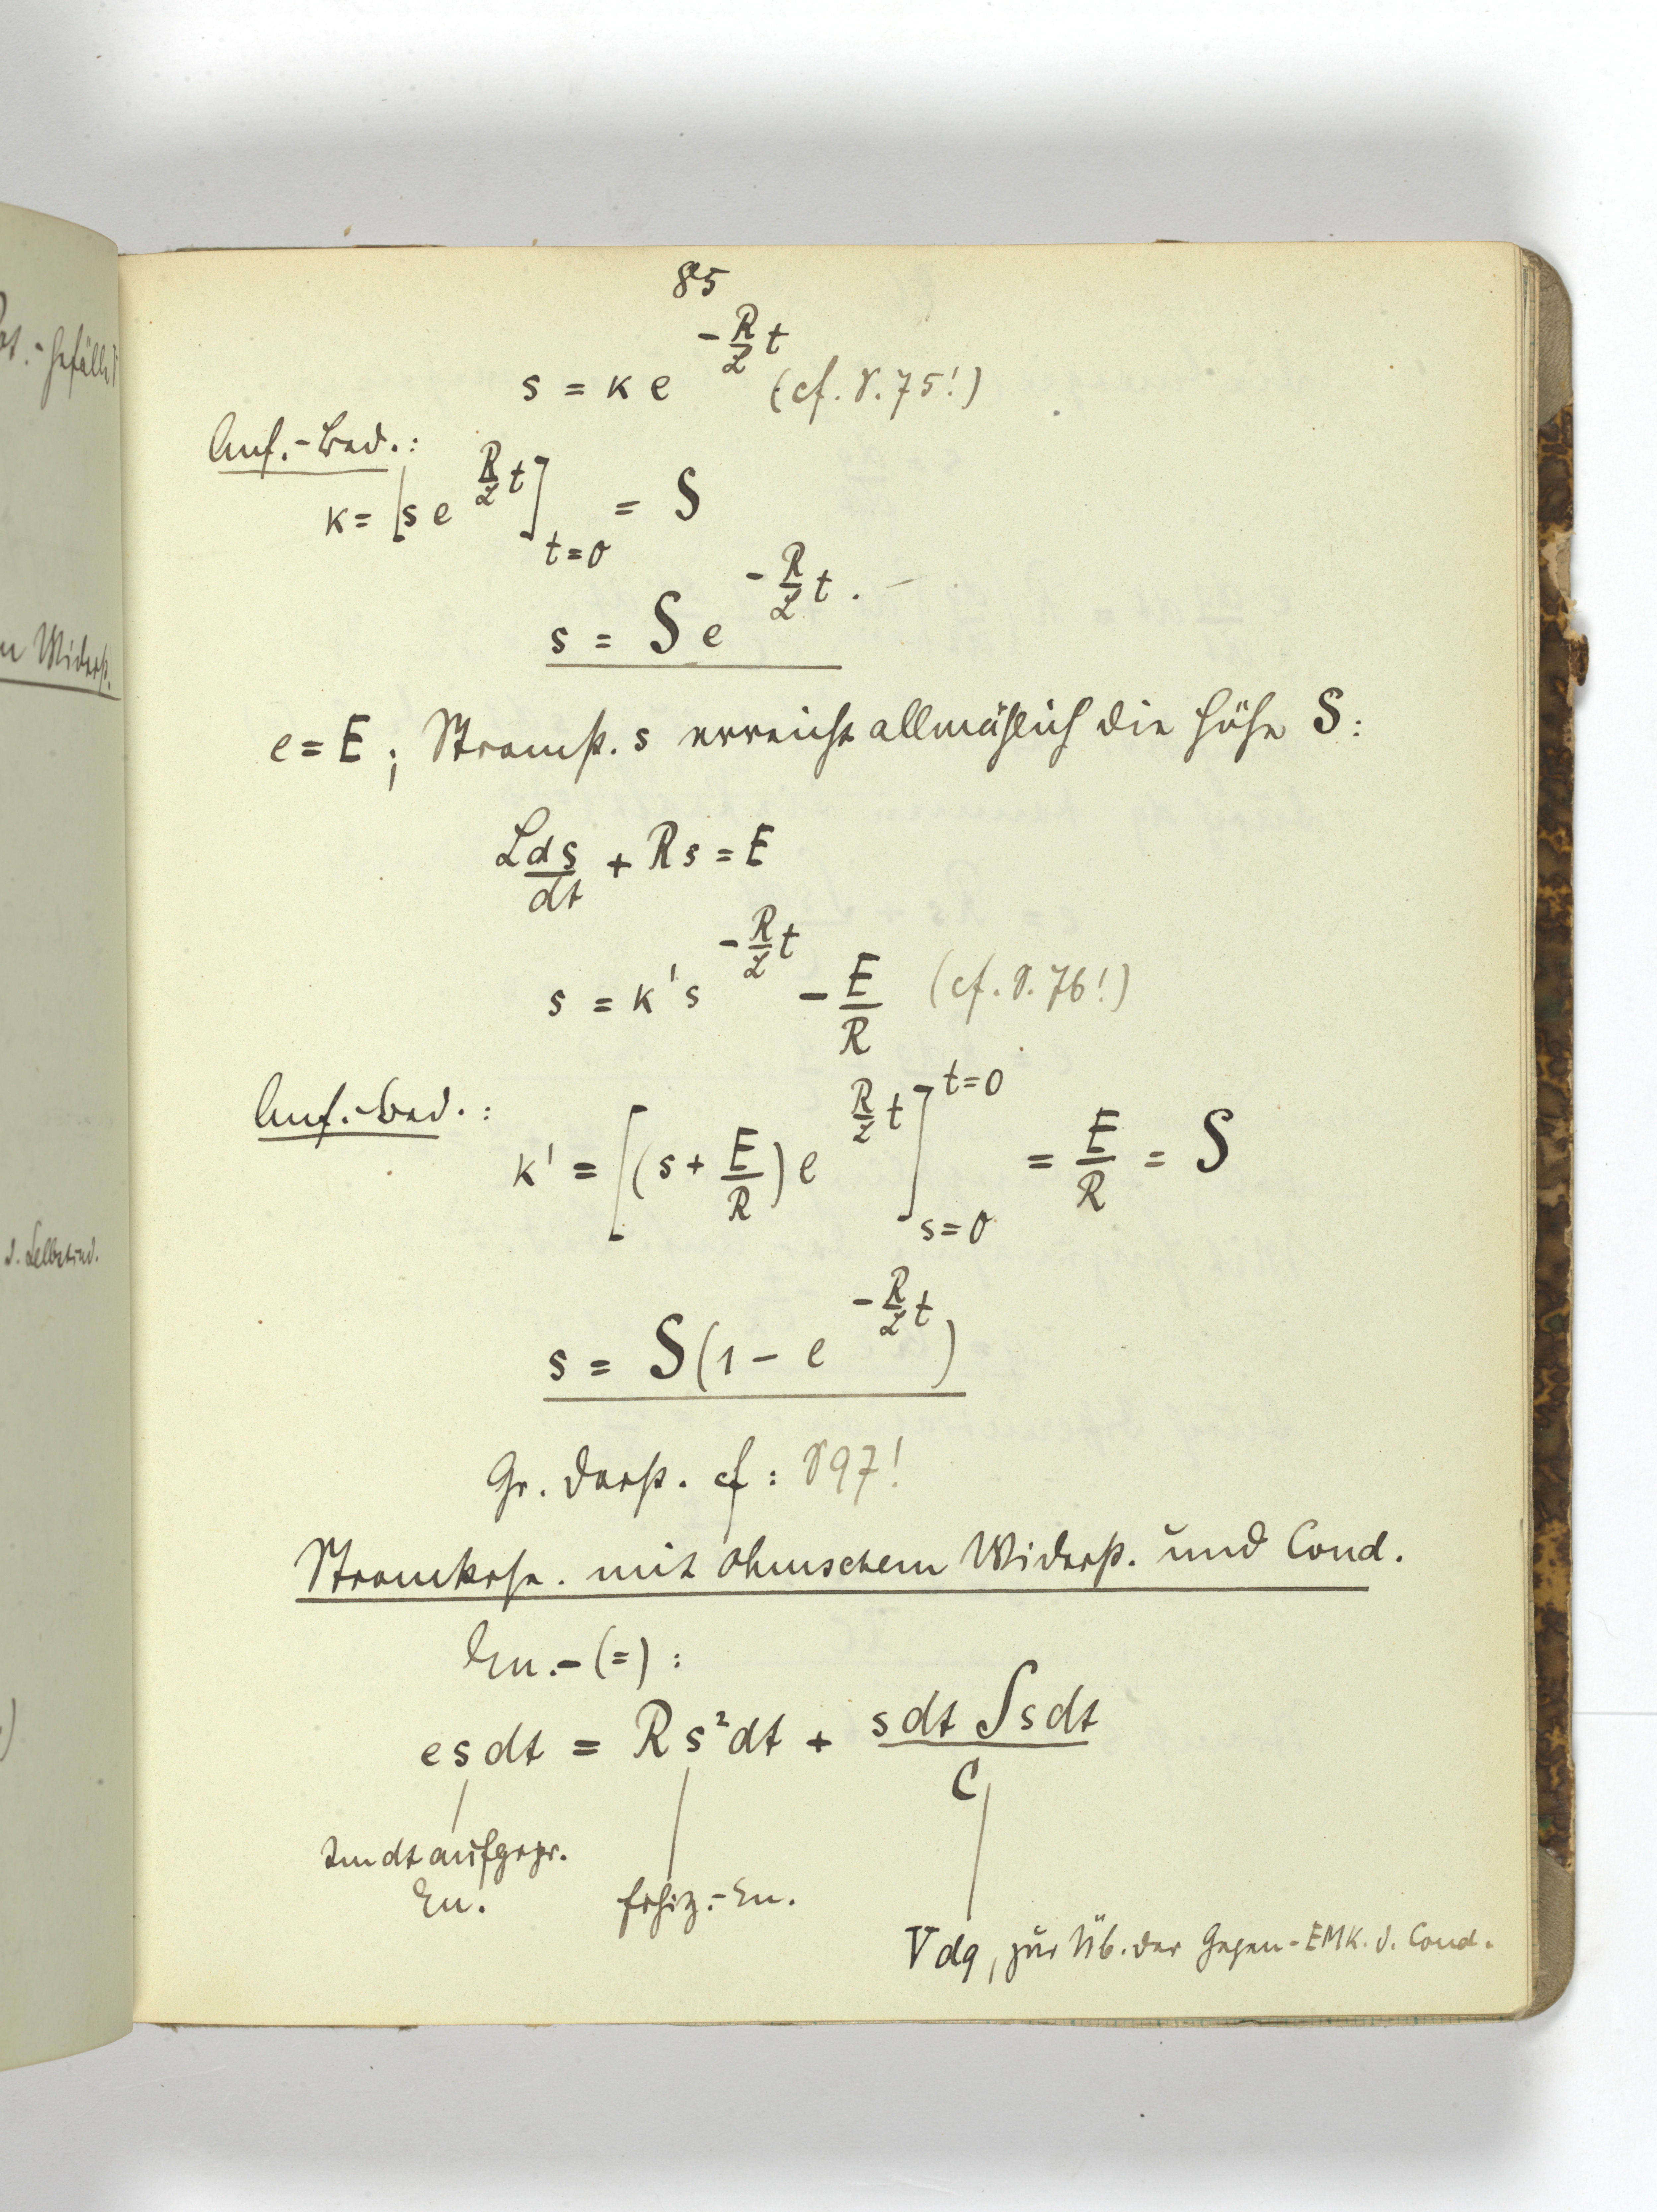 85
s = κ e^{-R/L t} (cf. S. 75!)
Anf.-Bed.:
κ = [s e^{R/L t}]_{t=0} = S
s = S e^{-R/L t}.
e = E; Stromst. s erreicht allmählich die Höhe S:
L ds/dt + Rs = E
s = κ's^{-R/L t} - E/R (cf. S. 76!)
Anf.-Bed.:
κ' = [(s + E/R) e^{R/L t}]^{t=0}_{s=0} = E/R = S
s = S(1 - e^{-R/L t})
Gr. Darst. cf: S 97!
mit Ohmschem Widerst. und Cond.
En.-(=):
es dt = R s² dt + s dt ∫s dt / C
dt aufgespr.
En.
En.
V dq, zur Üb. der Gegen-EMK. d. Cond.
Gefälle
n Widerst.
d. Selbstind.